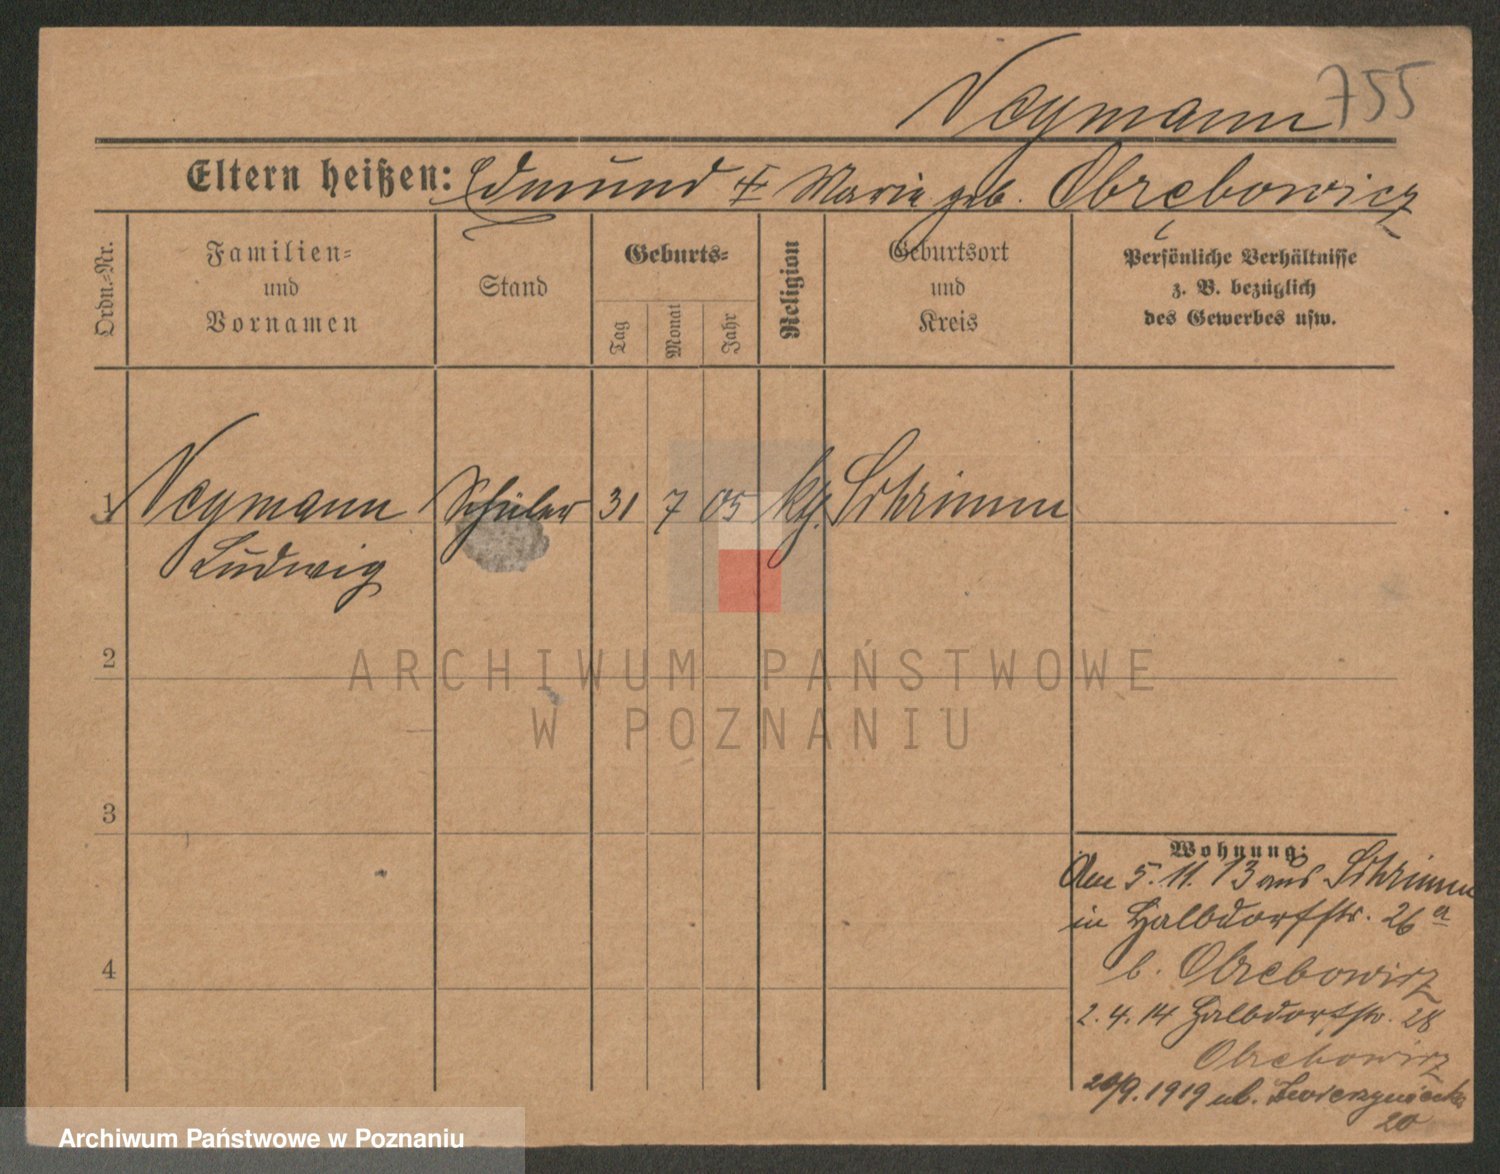 Neymann 755
Eltern heißen: Edmund + Marie geb. Obrębowicz
Ordn.-Nr.
Familien-
und
Vornamen
Stand
Geburts-
Tag
Monat
Jahr
Religion
Geburtsort
und
Kreis
Persönliche Verhältnisse
z. B. bezüglich
des Gewerbes usw.
1 Neymann Schüler 31 7 05 kth. Schrimm
Ludwig
2
ARCHIWUM PAŃSTWOWE
W POZNANIU
3
Wohnung:
Am 5.11.13 aus Schrimm
in Halbdorfstr. 26 a
b. Obrebowicz
4
2.4.14 Halbdorfstr. 28
Obrębowicz
1919 ul. Zwierzyniecka
20
Archiwum Państwowe w Poznaniu